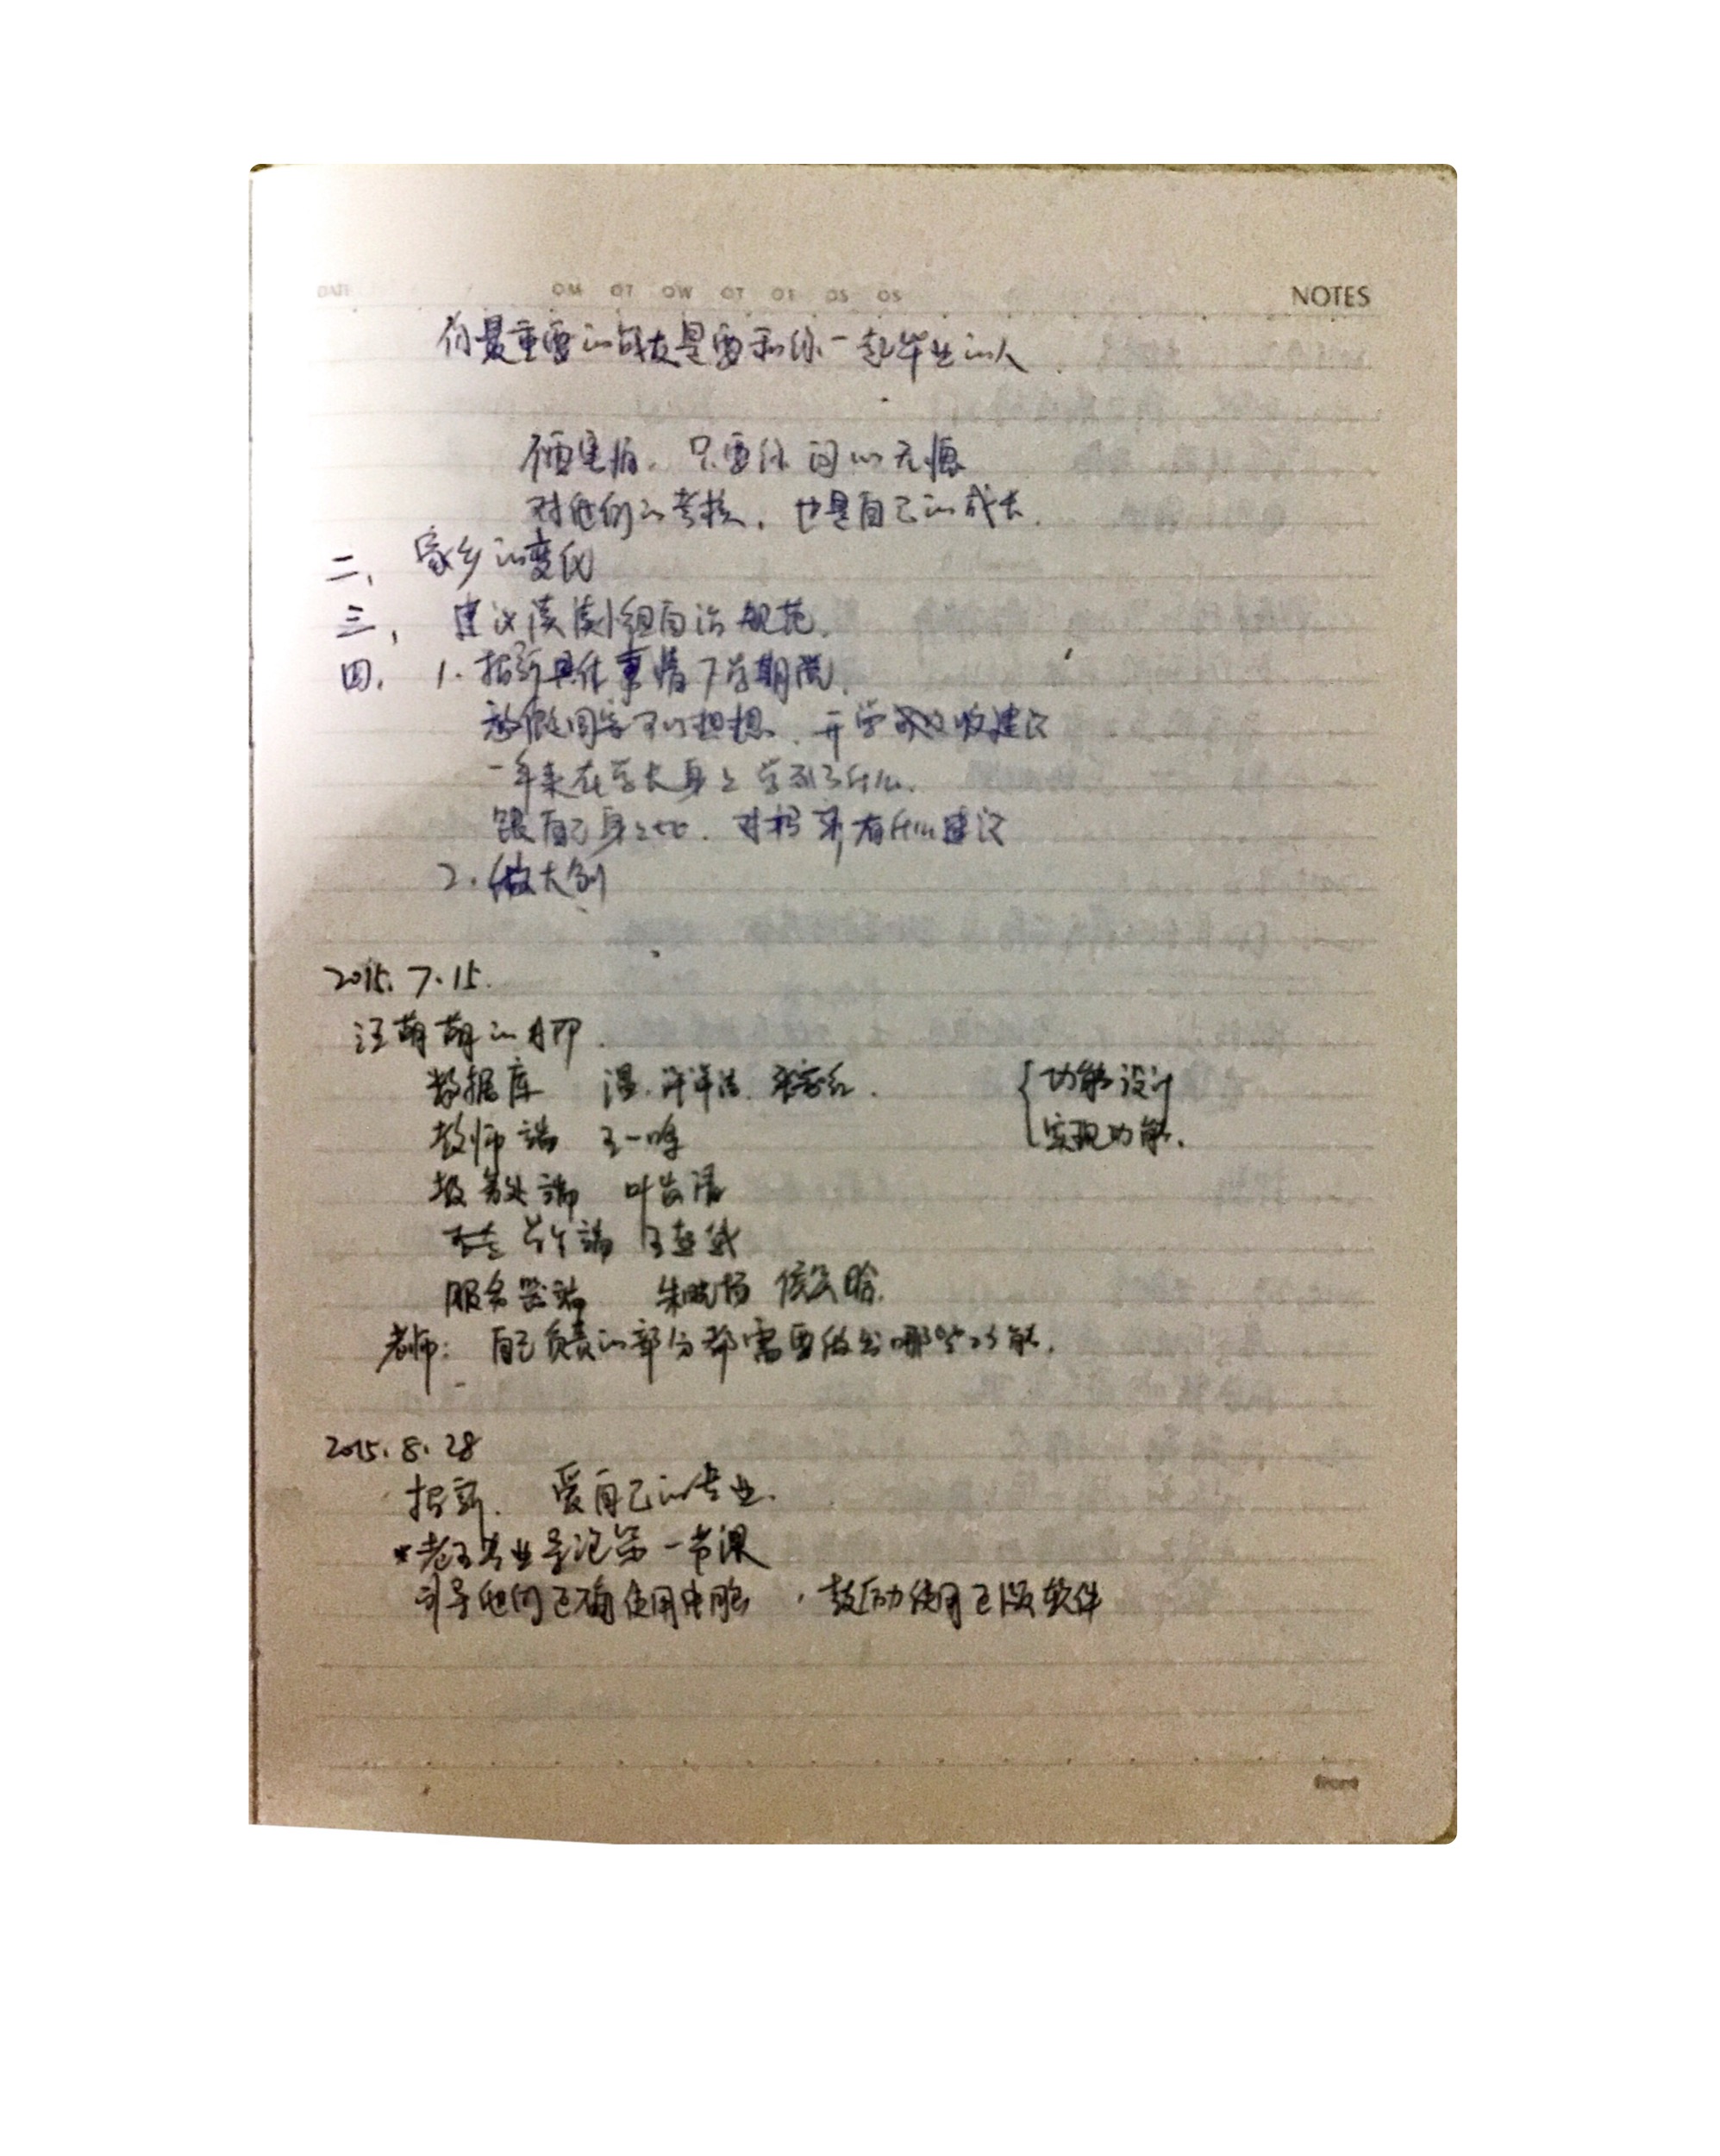 DATE OM OT OW OT OF OS OS NOTES
你最重要的战友是要和你一起毕业的人
不要害怕，只要你问心无愧
对他们的考核，也是自己的成长.
二、家乡的变化
三、建议 小组自治规范.
四、1.招新具体事情下学期说.
放假回家可以想想，开学 收建议
一年来在学长身上学到了什么.
跟自己身上比，对招新有什么建议
2.做大创
2015.7.15.
汪萌萌的 .
数据库
教师端 王一鸣
教务处端
学生端 王
服务器端 朱晓扬
老师：自己负责的部分都需要做出哪些功能.
{功能设计
实现功能.
2015.8.28
招新. 爱自己的专业.
*老王毕业 第一节课
引导他们正确使用电脑，鼓励使用正版软件